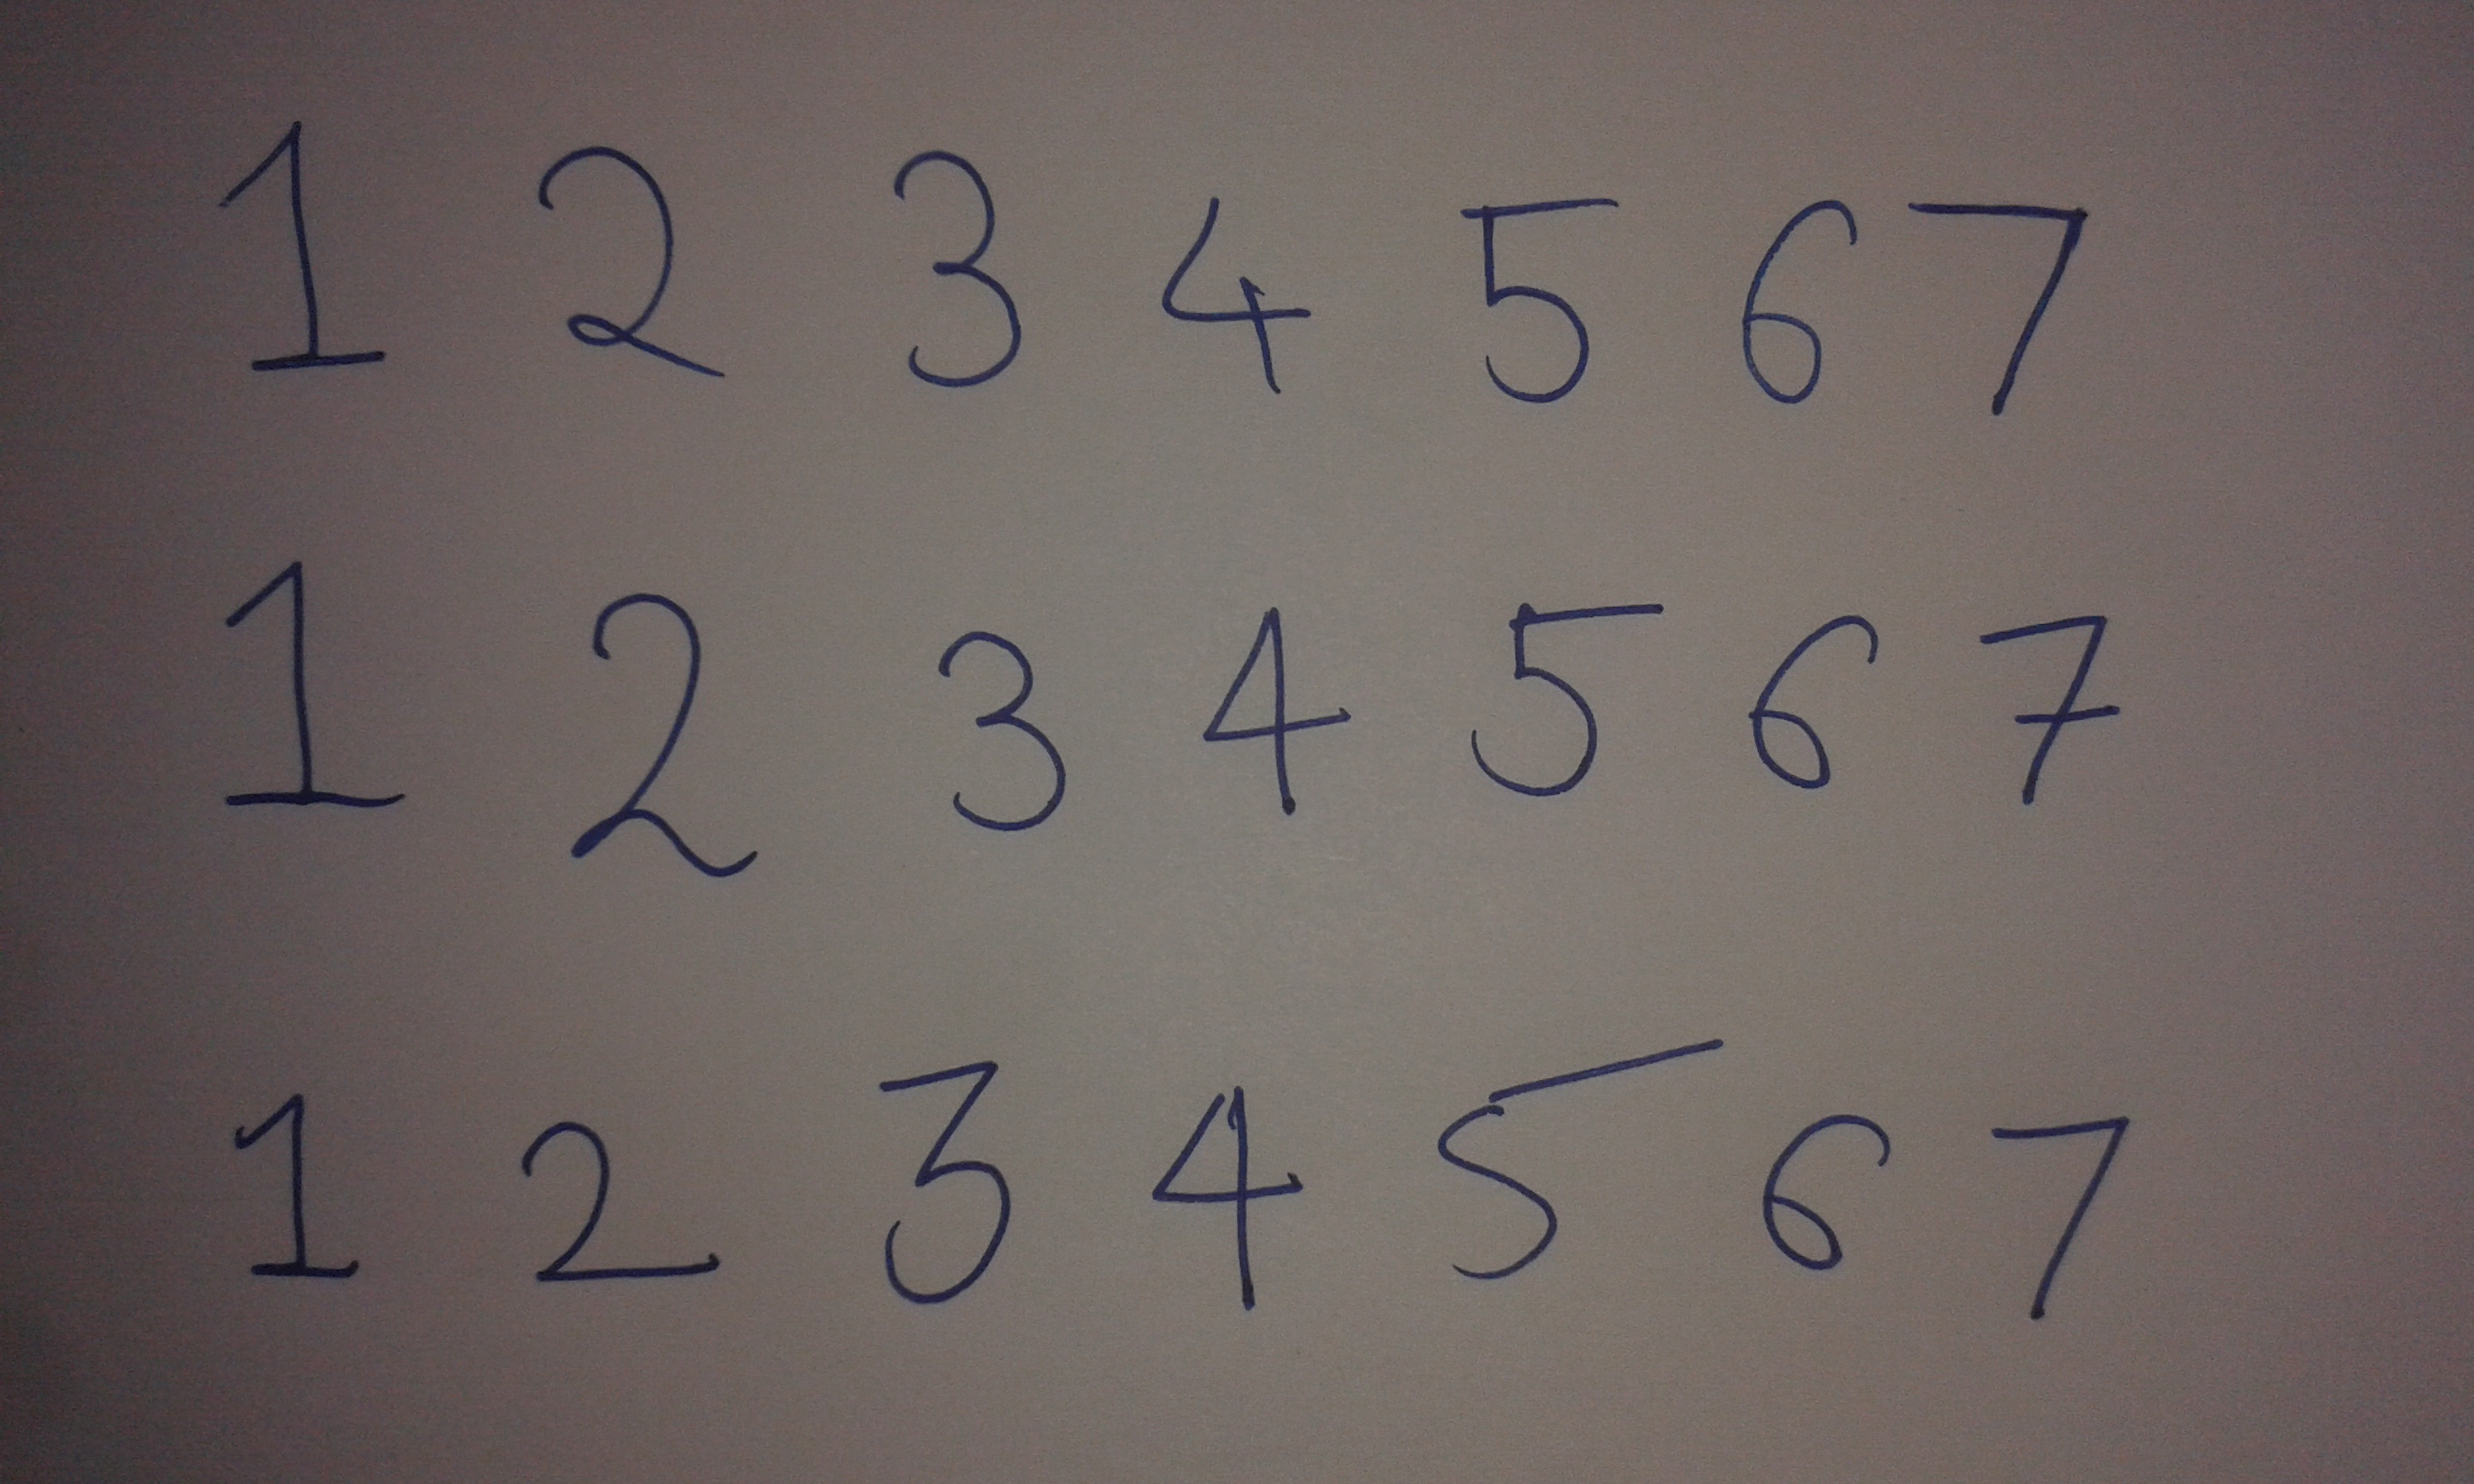 1 2 3 4 5 6 7
1 2 3 4 5 6 7
1 2 3 4 5 6 7